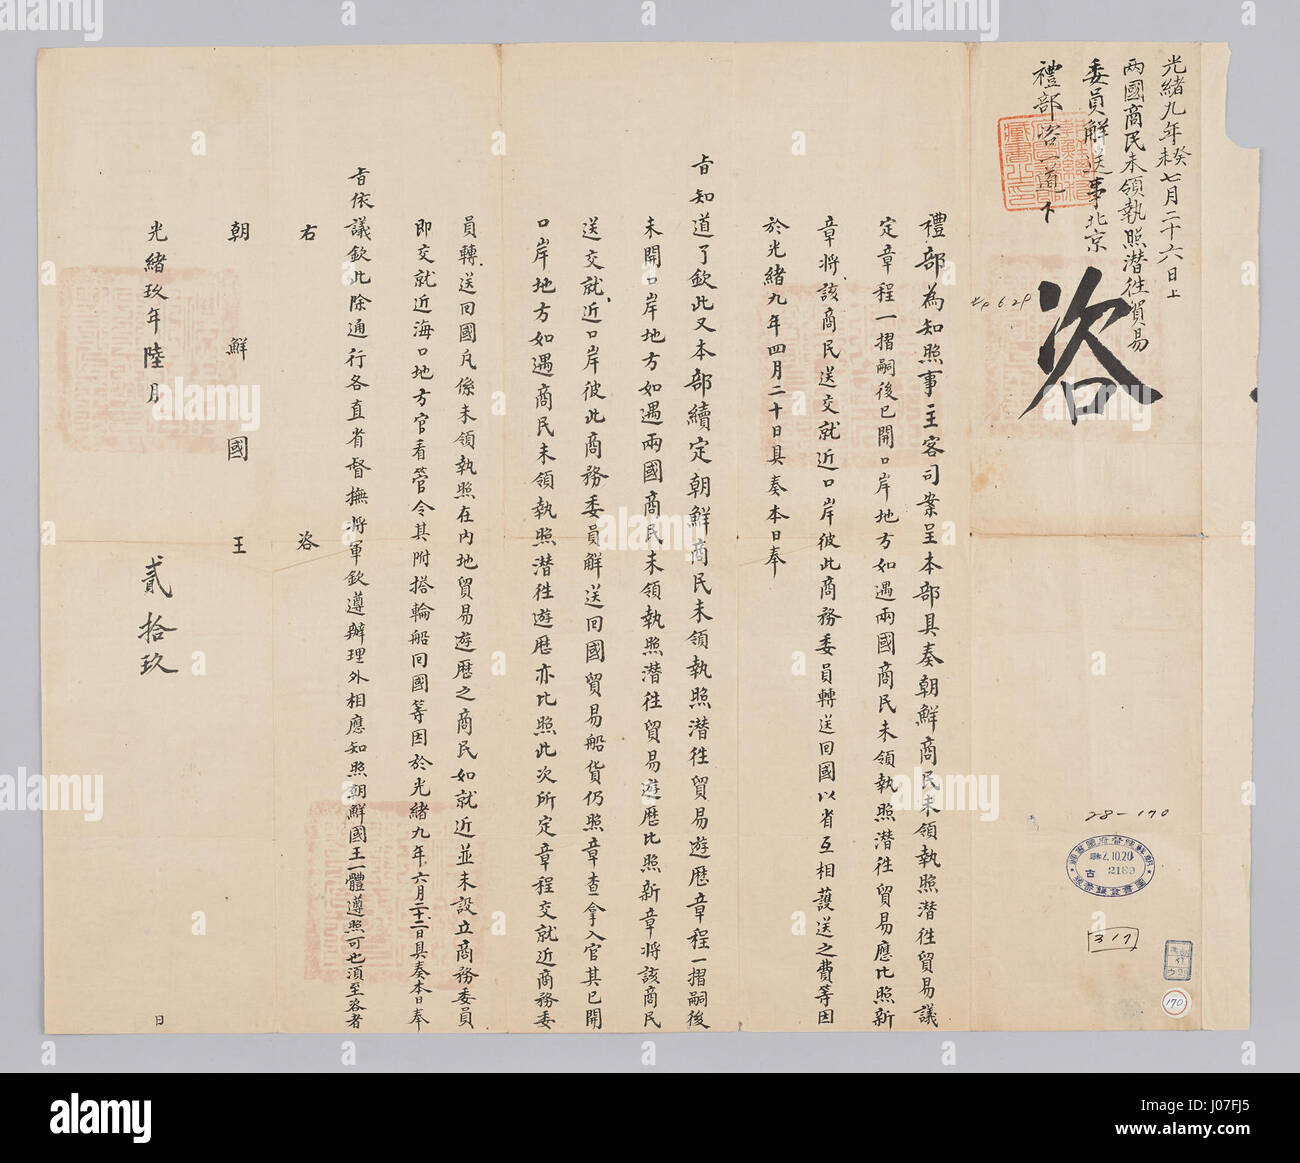 光緒九年癸未七月二十六日上
兩國商民未領執照潛往貿易
委員解送事北京
禮部咨一道卜
咨
禮部為知照事主客司案呈本部具奏朝鮮商民未領執照潛往貿易議
定章程一摺嗣後已開口岸地方如遇兩國商民未領執照潛往貿易應比照新
章將該商民送交就近口岸彼此商務委員轉送回國以省互相護送之費等因
於光緒九年四月二十日具奏本日奉
旨知道了欽此又本部續定朝鮮商民未領執照潛往貿易遊歷章程一摺嗣後
未開口岸地方如遇兩國商民未領執照潛往貿易遊歷比照新章將該商民
送交就近口岸彼此商務委員解送回國貿易船貨仍照章查拿入官其已開
口岸地方如遇商民未領執照潛往遊歷亦比照此次所定章程交就近商務委
員轉送回國凡係未領執照在內地貿易遊歷之商民如就近並未設立商務委員
即交就近海口地方官看管令其附搭輪船回國等因於光緒九年六月二十二日具奏本日奉
旨依議欽此除通行各直省督撫將軍欽遵辦理外相應知照朝鮮國王一體遵照可也須至咨者
右咨
朝鮮國王
光緒玖年陸月貳拾玖日
28-170
2.10.20
古 2180
317
170
alamy
Image ID: J07FJ5
www.alamy.com